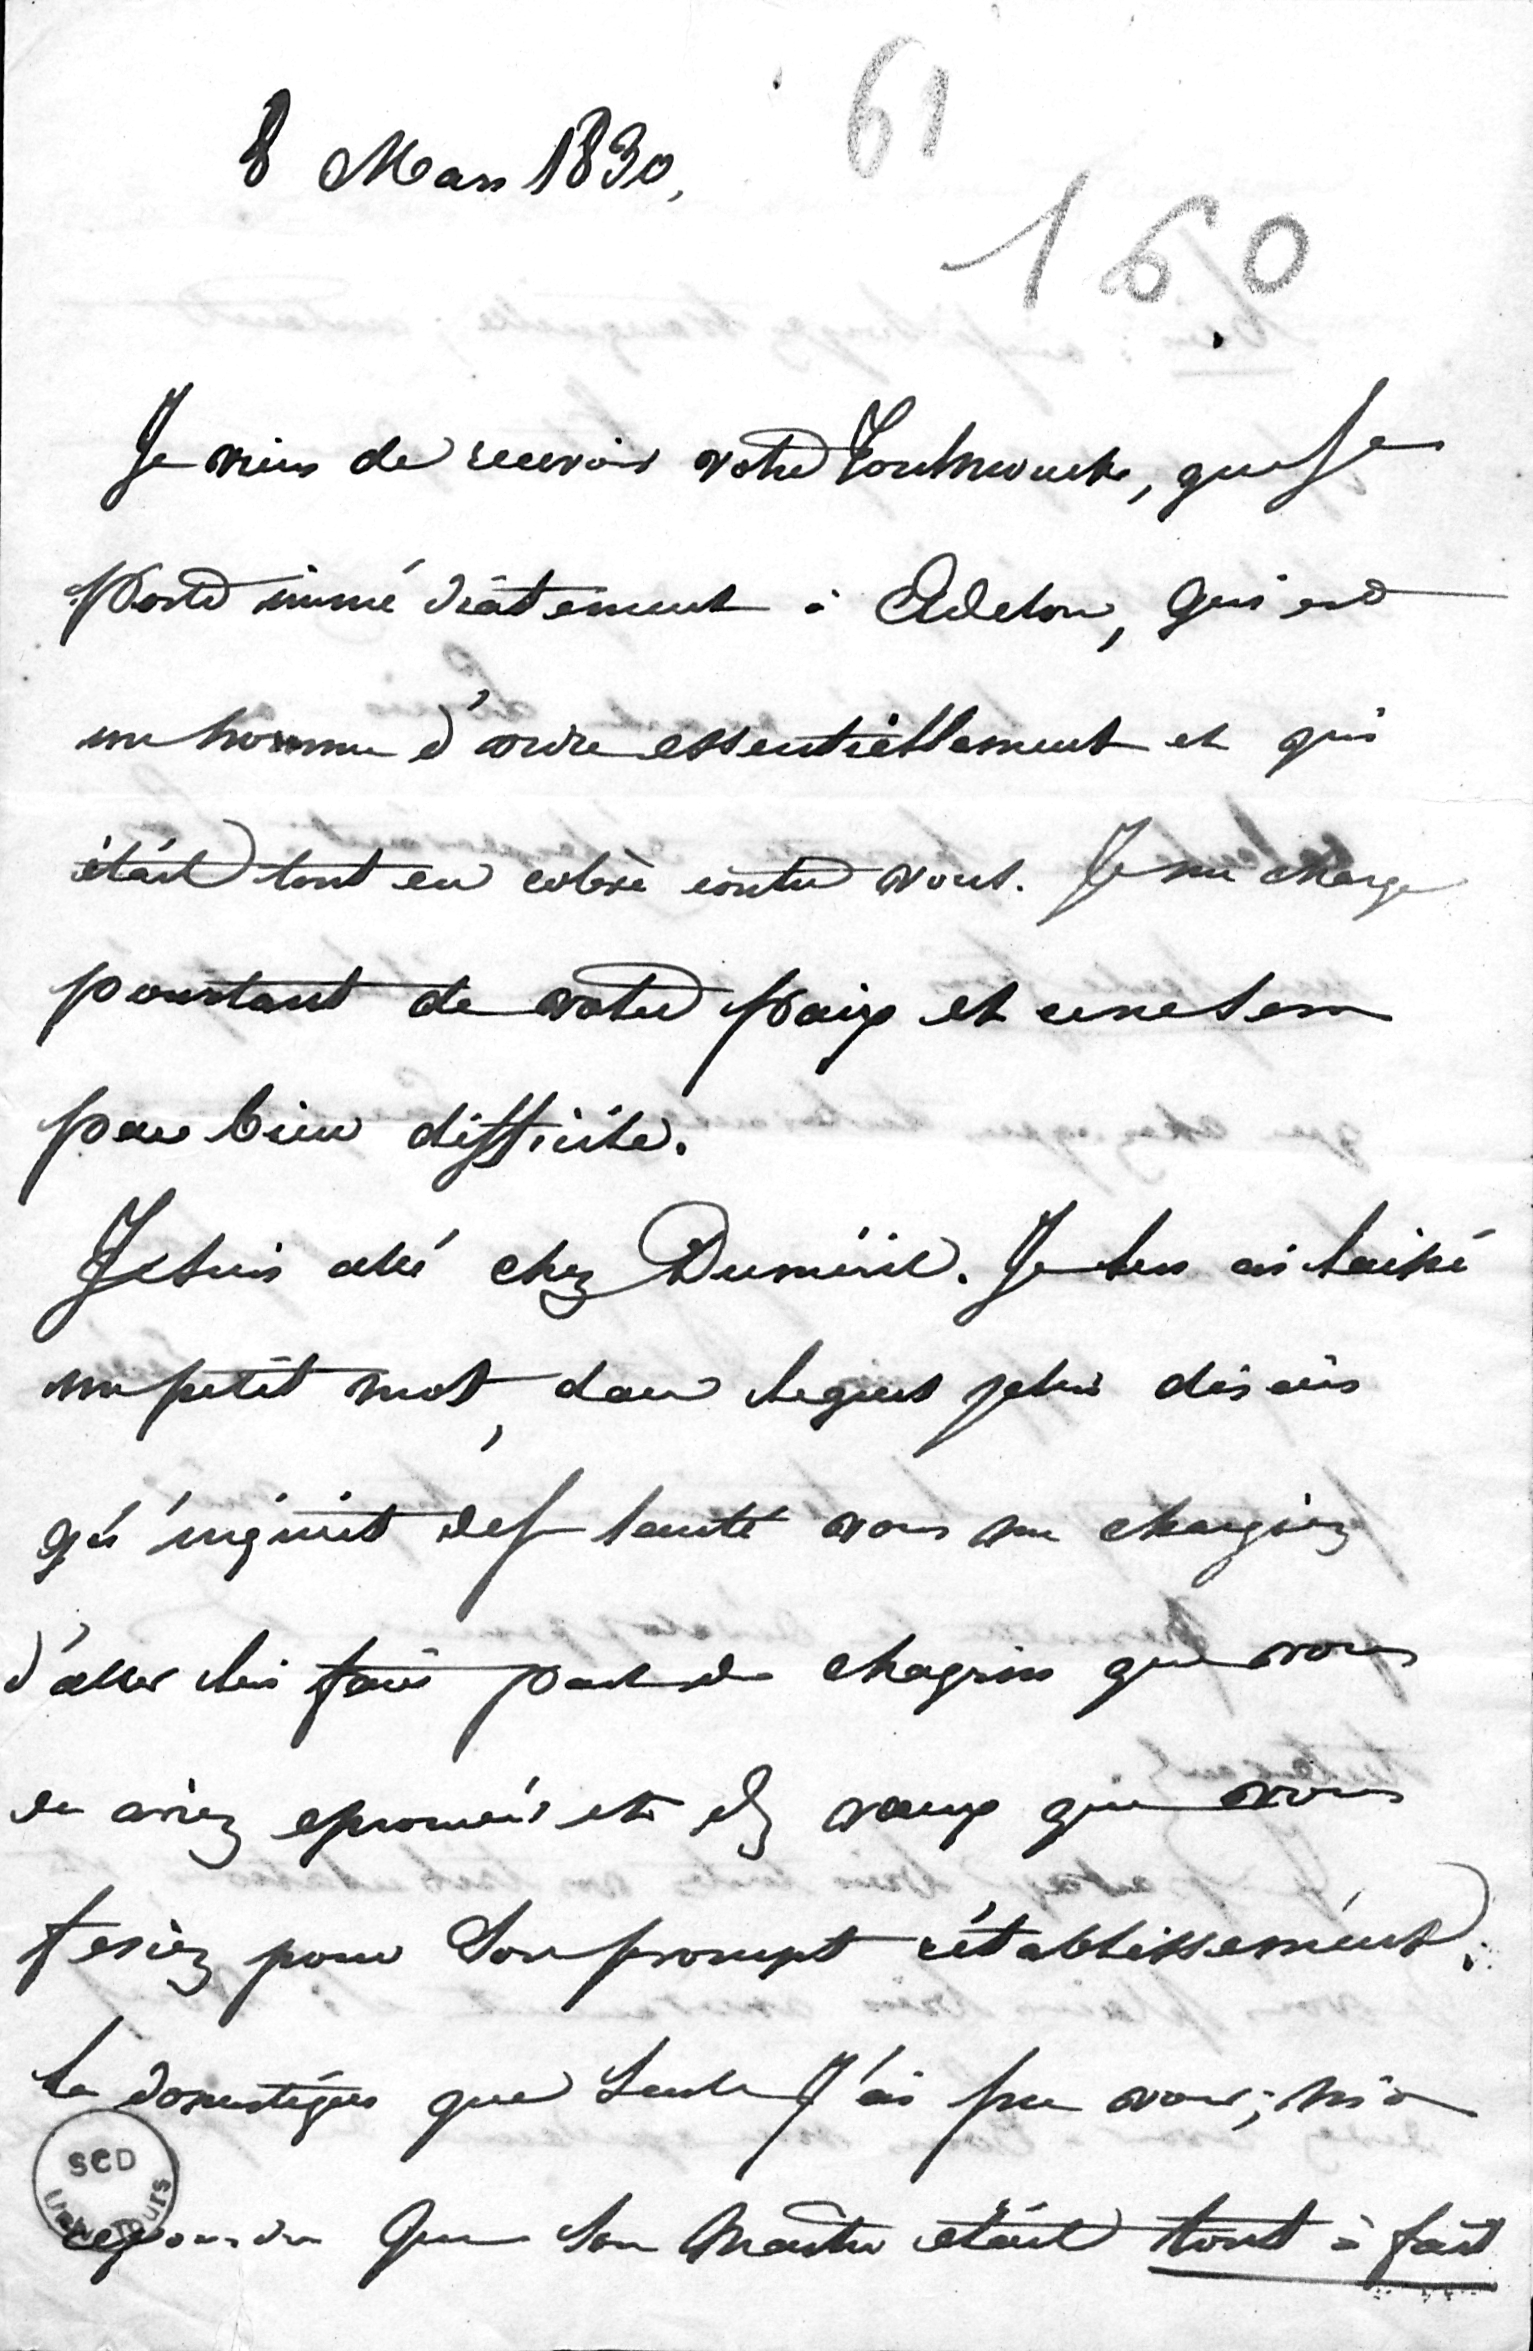 61
8 Mars 1830,
160
Je viens de recevoir votre que Je
porte immédiatement à Adelon, qui est
un homme d'ordre essentiellement et qui
était tout en colère contre vous. Je me charge
pourtant de votre paix et ce ne sera
pas bien difficile.
Je suis allé chez Duméril. Je lui ai laissé
un petit mot, dans lequel je lui disais
qu'inquiet de sa santé vous me chargiez
d'aller lui faire part du chagrin que vous
en aviez eprouvé et des vœux que vous
fesiez pour son prompt rétablissement.
le domestique que seul J'ai pu voir, m'a
repondu que son Maitre etait tout à fait
SCD
Tours